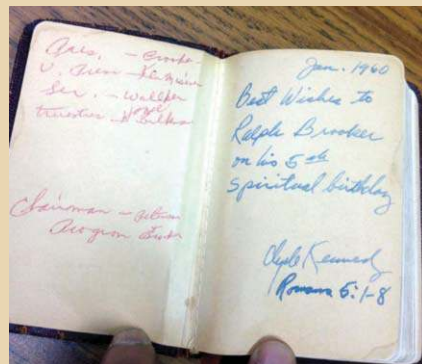 Pres. - Brooker
V. Pres -
Sec. - Walker
Trustee -
Chairman -
Program
Jan. 1960
Best Wishes to
Ralph Brooker
on his 5th
spiritual birthday
Clyde Kennedy
Romans 5:1-8